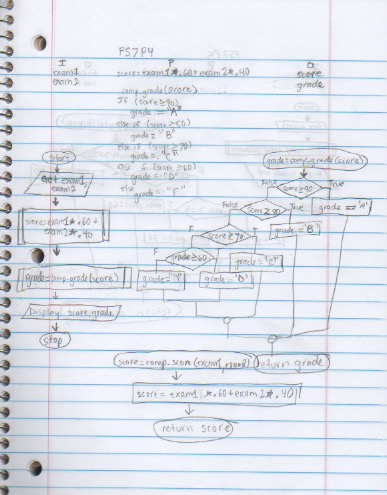 PS7P4
I P O
exam1 score=exam1*.60+exam2*.40 score
exam2 grade
comp_grade(score)
IF (score≥90)
grade = "A"
else if (score≥80)
grade = "B"
else if (score≥70)
else if (score≥60)
grade = "D"
else
grade = "F"
start
Get exam1,
exam2
score=exam1*.60+
exam2*.40
grade=comp-grade(score)
Display score,grade
stop
grade=comp-grade(score)
False score≥90 True
False True grade = 'A'
F score≥70 T grade = 'B'
F grade≥60 T
grade= grade= 'D'
score=comp_score(exam1,exam2) return grade
score = exam1*.60+exam2*.40
return score